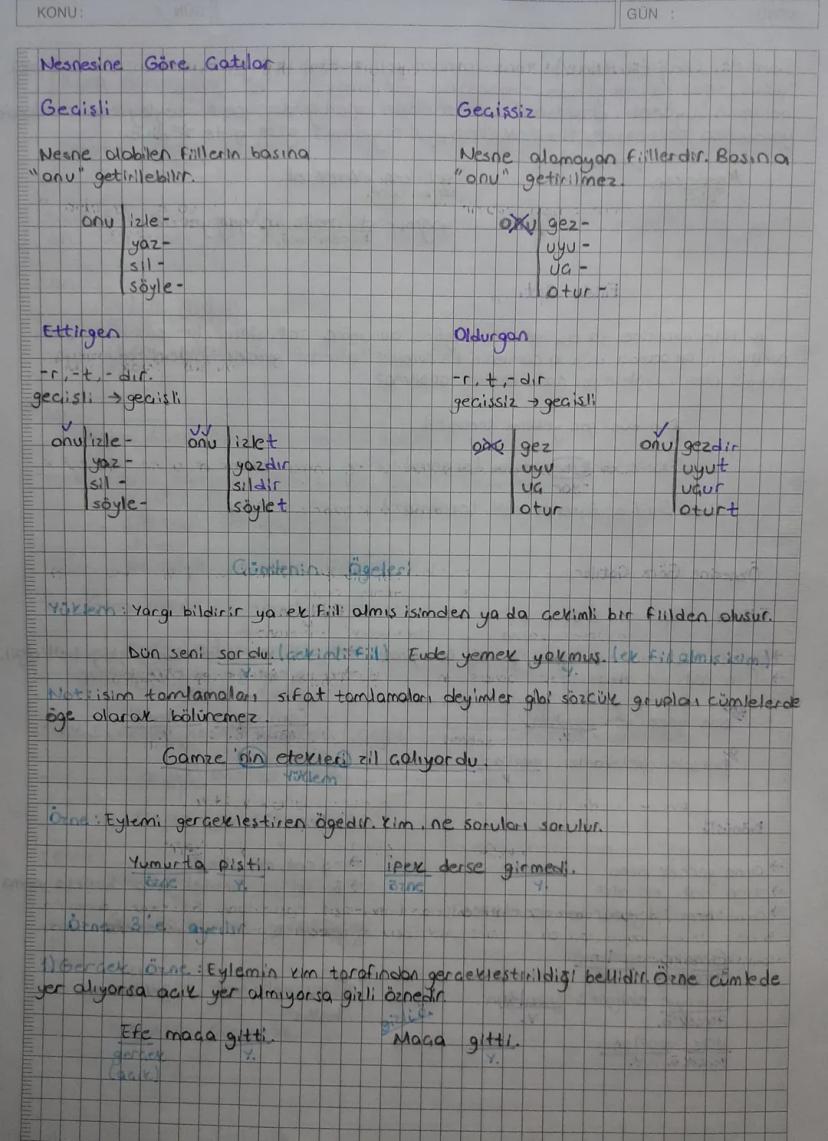 KONU:
GÜN :
Nesnesine Göre Çatılar
Geçişli
Geçişsiz
Nesne alabilen fiillerin başına
"onu" getirilebilir.
Nesne alamayan fiillerdir. Başına
"onu" getirilmez.
onu izle-
yaz-
sil-
söyle-
onu gez-
uyu-
uç-
otur-
Ettirgen
Oldurgan
-r, -t, -dır.
geçişli → geçişli
-r, t, -dır
geçissiz → geçişli
onu izle-
yaz-
sil-
söyle-
onu izlet
yazdır
sildir
söylet
onu gez
uyu
uç
otur
onu gezdir
uyut
uçur
oturt
Cümlenin Ögeleri
Yüklem: Yargı bildirir ya ek fiil almış isimden ya da çekimli bir fiilden oluşur.
Dün seni sordu. (çekimli fiil) Evde yemek yokmuş. (ek fiil almış isim)
Y. Y.
Not: isim tamlamaları, sıfat tamlamaları, deyimler gibi sözcük grupları cümlelerde
öge olarak bölünemez.
Gamze'nin etekleri zil çalıyordu.
Yüklem
Özne: Eylemi gerçekleştiren ögedir. Kim, ne soruları sorulur.
Yumurta pişti. ipek derse girmedi.
özne Y. özne Y.
Özne 3'e ayrılır
1) Gerçek Özne: Eylemin kim tarafından gerçekleştirildiği bellidir. Özne cümlede
yer alıyorsa açık yer almıyorsa gizli öznedir.
gizli ö.
Efe maça gitti. Maça gitti.
gerçek Y. Y.
(açık)